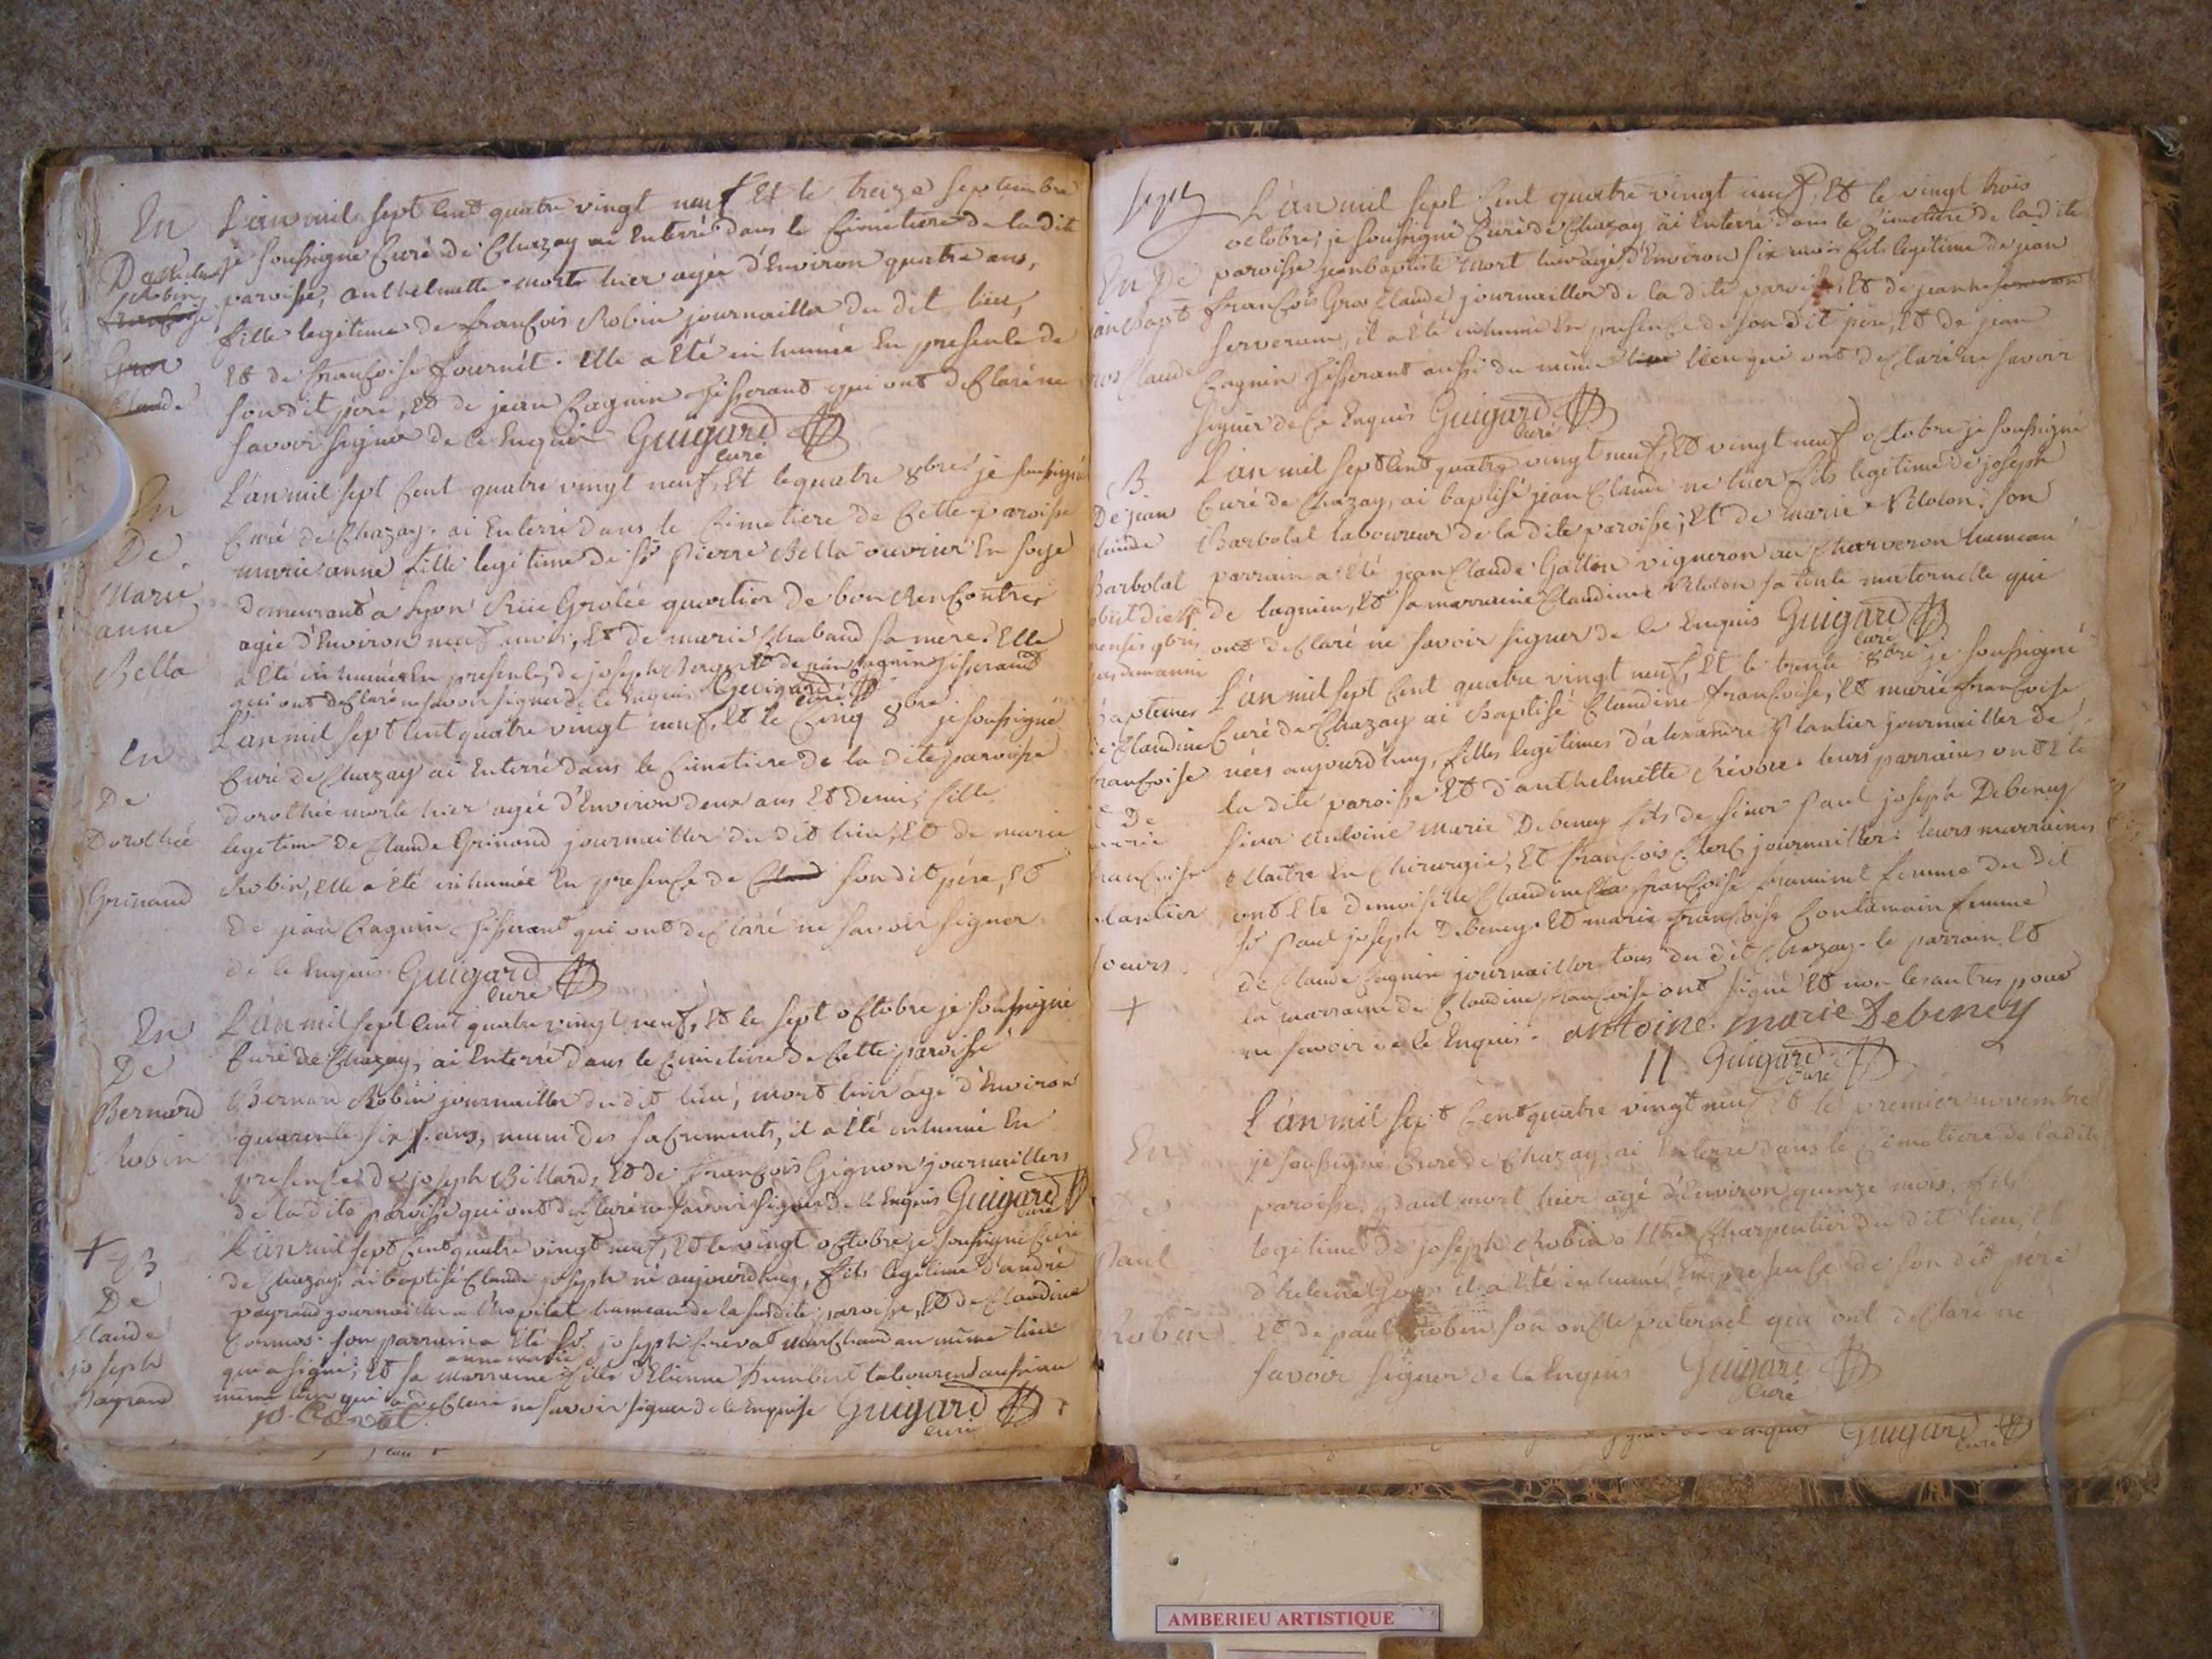 En
De
Robin
Gros
Claude
L'an mil sept cent quatre vingt neuf Et le treize septembre
je soussigné Curé de Chazay ai Enterré dans le Cimetiere de la dite
paroisse, anthelmette morte hier agée d'Environ quatre ans,
fille legitime de françois Robin journaillier du dit lieu,
Et de françoise fournit. Elle a Eté inhumée En presence de
son dit pere, Et de jean Cagnin tisserant qui ont déClaré ne
savoir signer de ce Enquis Guigard
curé
En
De
Marie
anne
Bella
L'an mil sept Cent quatre vingt neuf, Et le quatre 8bre je soussigné
Curé de Chazay. ai Enterré dans le Cimetiere de Cette paroisse
marie anne fille legitime de Sr Pierre Bella ouvrier En soye
demeurant a Lyon Rüe Grolée quartier de bon RenContre,
agée d'Environ neuf mois, Et de marie Chabaud sa mère. Elle
a Eté inhumée En presence de joseph Et de jean Cagnin tisserand
qui ont déClaré ne savoir signer de ce Enquis Guigard
curé
En
De
Dorothée
Grinand
L'an mil sept Cent quatre vingt neuf, Et le Cinq 8bre je soussigné
Curé de Chazay ai Enterré dans le Cimetiere de la dite paroisse
dorothée morte hier agée d'Environ deux ans Et demi, fille
legitime de Claude Grinand journaillier du dit lieu, Et de marie
Robin, Elle a Eté inhumée En presence de Claud son dit pére, Et
de jean Cagnin tisserant qui ont déClaré ne savoir signer
de ce Enquis. Guigard
curé
En
De
Bernard
Robin
L'an mil sept Cent quatre vingt neuf, Et le sept oCtobre je soussigné
Curé de Chazay, ai Enterré dans le Cimetiere de Cette paroisse
Bernard Robin journaillier du dit lieu, mort hier agé d'Environ
quarente six ans, muni des saCrements, il a Eté inhumé En
presence de joseph Billard, Et de françois Gignon journailliers
de la dite paroisse qui ont déClaré ne savoir signer de ce Enquis Guigard
curé
+ B
De
Claude
joseph
Payraud
L'an mil sept Cent quatre vingt neuf, Et le vingt oCtobre je soussigné Curé
de Chazay ai baptisé Claude joseph né aujourd'huy, fils legitime d'andré
payraud journaillier a hameau de la susdite paroisse, Et de Claudine
Cormos. son parrain a Eté Sr. joseph marChand au même lieu
qui a signé; Et sa marraine anne marie fille d'Etienne Humbert laboureur aussi au
même lieu qui a déClaré ne savoir signer de ce Enquise Guigard
curé
sept
En De
jean Bapte
Gros Claude
L'an mil sept Cent quatre vingt neuf, Et le vingt trois
octobre, je soussigné Curé de Chazay ai Enterré dans le Cimetiere de la dite
paroisse jean baptiste mort hier agé d'Environ six mois fils legitime de jean
françois Gros Claude journaillier de la dite paroisse, Et de jeanne
serveran, il a Eté inhumé En presence de son dit père, Et de jean
Cagnin tisserant aussi du même lieu qui ont déClaré ne savoir
signer de Ce Enquis Guigard
curé
B
De jean
Claude
Barbolat
L'an mil sept Cent quatre vingt neuf, Et vingt neuf oCtobre je soussigné
Curé de Chazay, ai baptisé jean Claude né hier fils legitime de joseph
Barbolat laboureur de la dite paroisse, Et de marie Vilolon. son
parrain a Eté jean Claude Gallon vigneron au Charveron hameau
de lagnieu, Et sa marraine Claudine Vilolon sa tente maternelle qui
ont déClaré ne savoir signer de ce Enquis Guigard
curé
Baptemes
de Claudine
françoise
Et De
marie
françoise
Plantier
soeurs
+
L'an mil sept Cent quatre vingt neuf, Et le trente 8bre je soussigné
Curé de Chazay ai Baptisé Claudine françoise, Et marie françoise
nées aujourd'huy, filles legitimes d'alexandre Plantier journaillier de
la dite paroisse Et d'anthelmette Révoux. leurs parrains ont Eté
sieur antoine marie Debeney fils de sieur Paul joseph Debeney
Maitre En Chirurgie, Et françois ClerC journaillier: leurs marraines
ont Eté demoiselle Claudine françoise femme du dit
Sr Paul joseph Debeney. Et marie françoise Contamain femme
de Claude Cagnin journaillier tous du dit Chazay. le parrain Et
la marraine de Claudine françoise ont signé Et non les autres pour
ne savoir de ce Enquis. antoine. marie Debeney
Guigard
curé
En
De
Paul
Robin
L'an mil sept Cent quatre vingt neuf Et le premier novembre
je soussigné Curé de Chazay ai Enterré dans le Cimetiere de la dite
paroisse. paul mort hier agé d'Environ quinze mois, fils
legitime de joseph Robin Mtre Charpentier du dit lieu, Et
d'helene il a Eté inhumé En presence de son dit père
Et de paul Robin son oncle paternel qui ont déClaré ne
savoir signer de ce Enquis Guigard
curé
Enquis Guigard
curé
AMBERIEU ARTISTIQUE